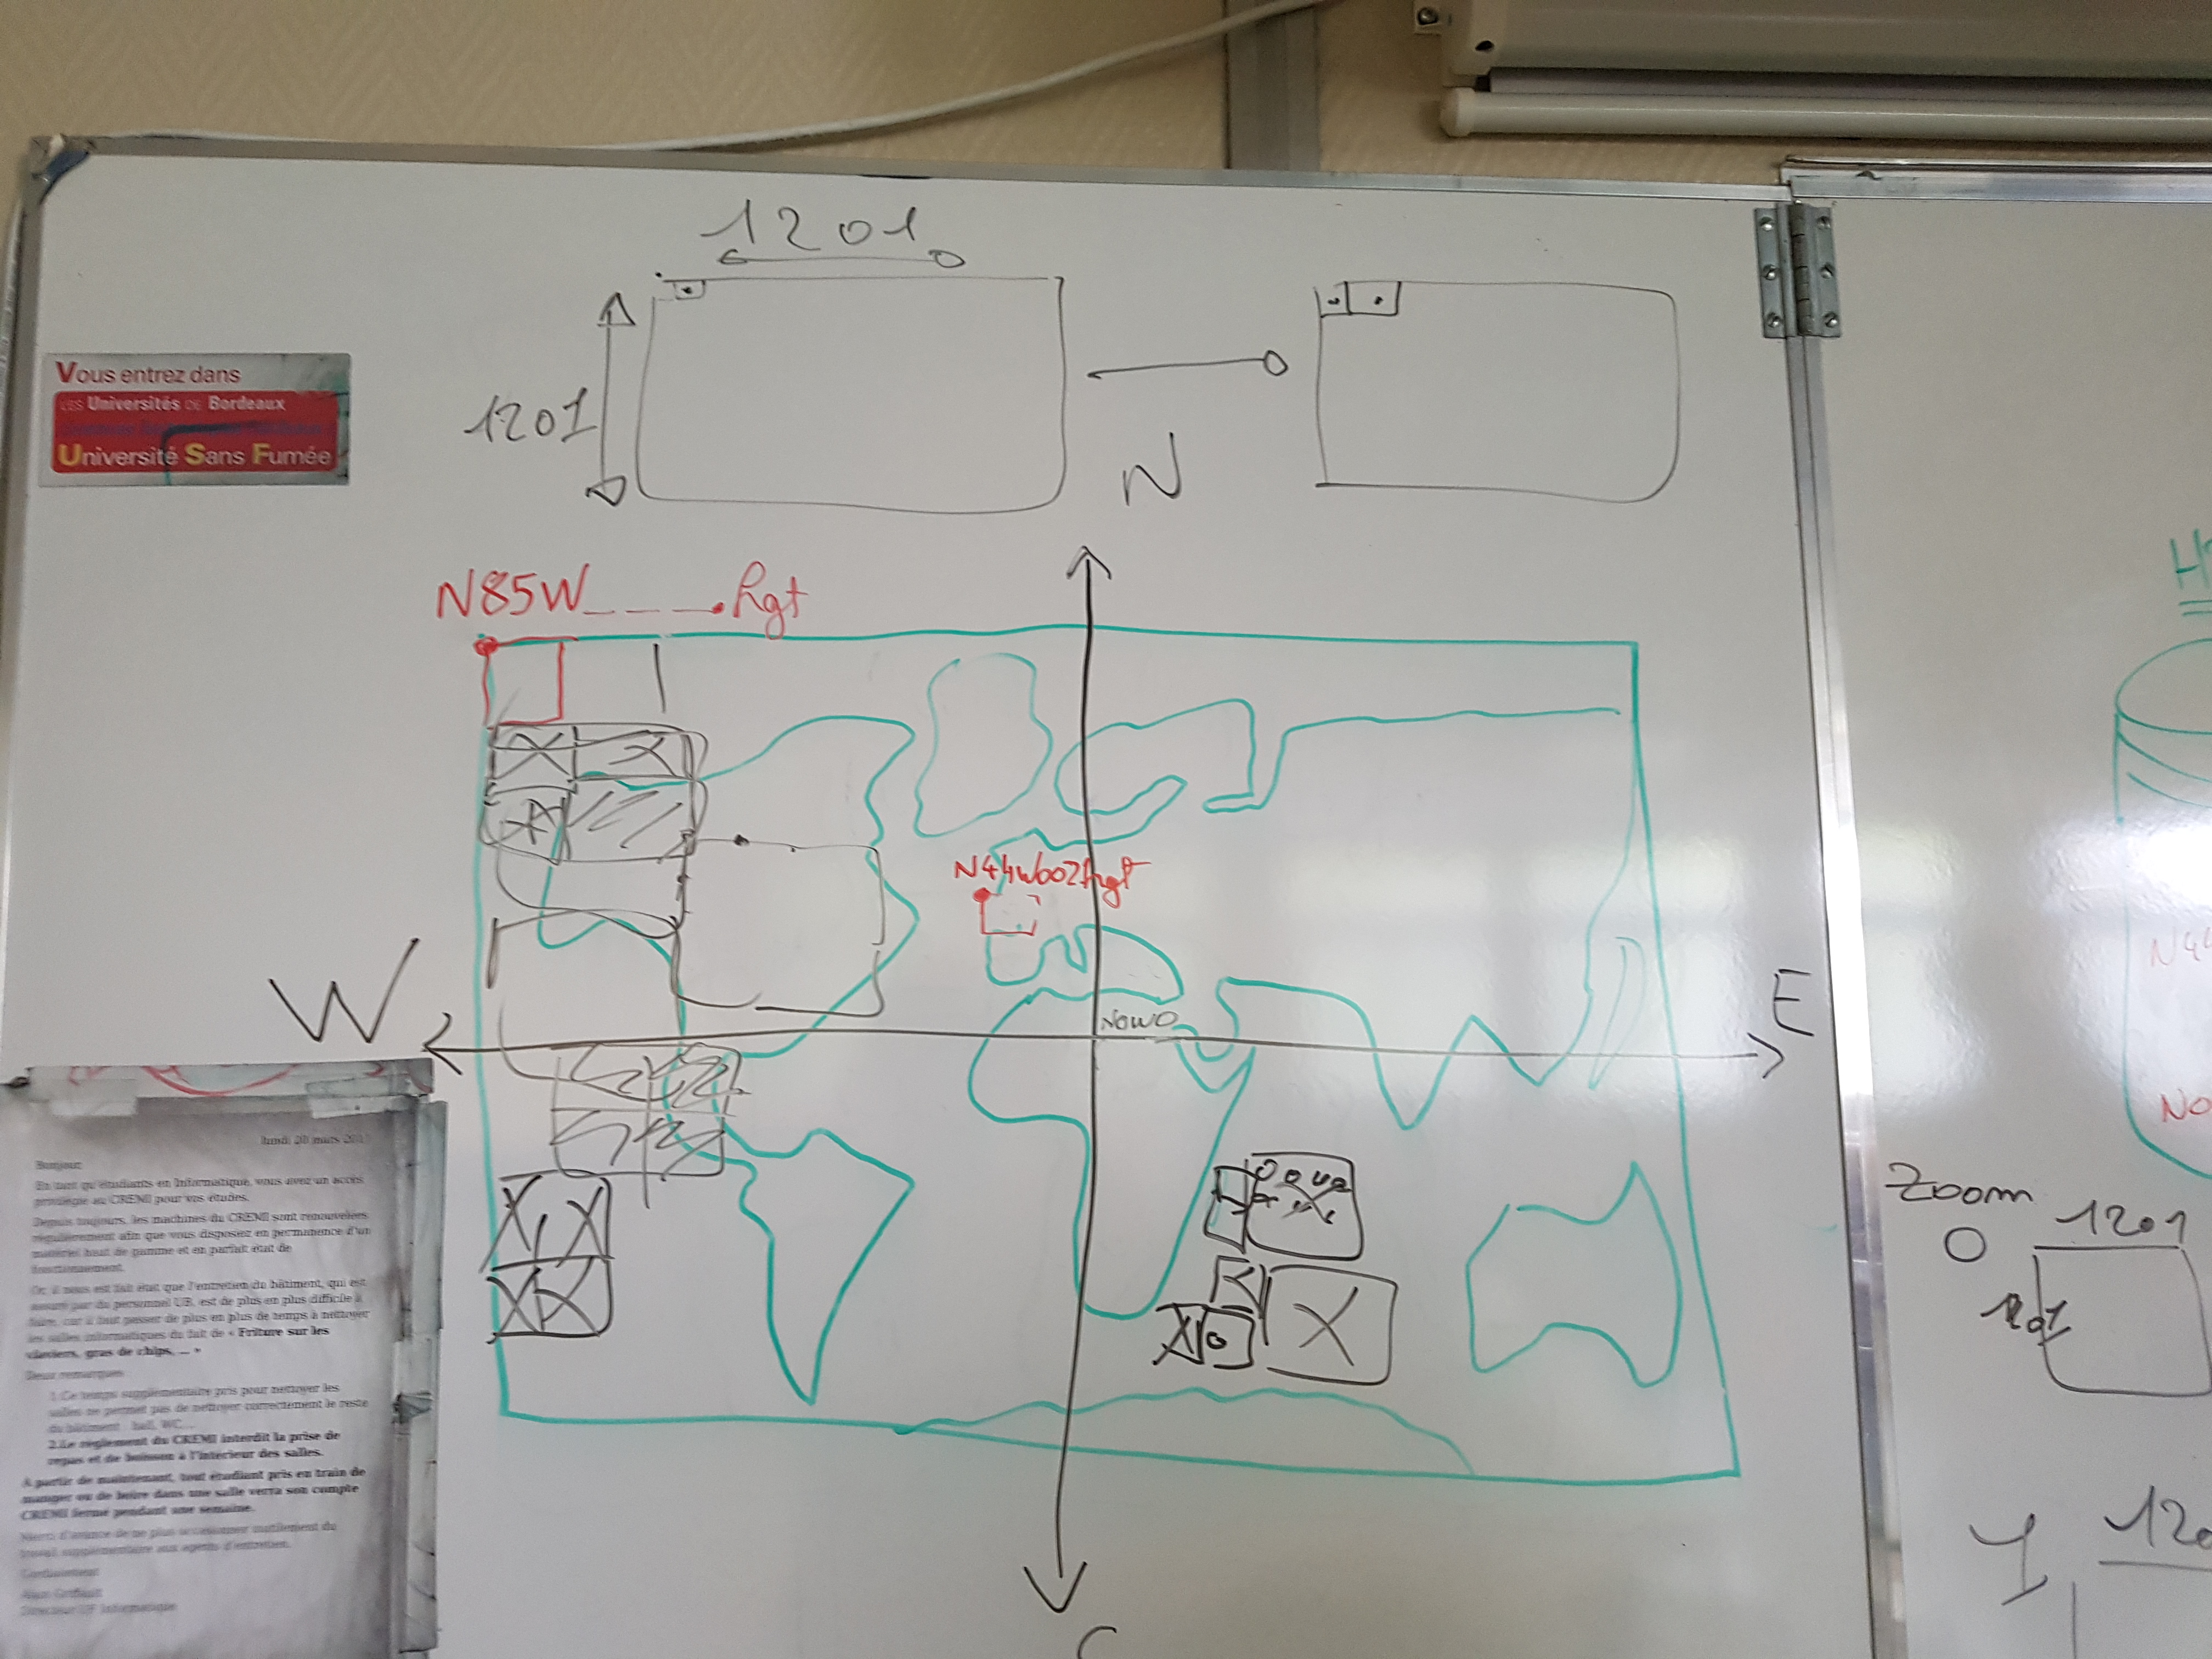 1201
1201
N
N85W____.hgt
N44W002hgt
W
E
N0W0
Vous entrez dans
LES Universités DE Bordeaux
Université Sans Fumée
lundi 20 mars
Bonjour
En tant qu'étudiants en Informatique, vous avez un accès
privilégié au CREMI pour vos études.
Depuis toujours, les machines du CREMI sont renouvelées
régulièrement afin que vous disposiez en permanence d'un
matériel haut de gamme et en parfait état de
fonctionnement.
Or, il nous est fait état que l'entretien du bâtiment, qui est
assuré par du personnel UB, est de plus en plus difficile à
faire, car il faut passer de plus en plus de temps à nettoyer
les salles informatiques du fait de « Friture sur les
claviers, gras de chips, ... »
Deux remarques
1.Ce temps supplémentaire pris pour nettoyer les
salles ne permet pas de nettoyer correctement le reste
du bâtiment : hall, WC...
2.Le règlement du CREMI interdit la prise de
repas et de boisson à l'intérieur des salles.
A partir de maintenant, tout étudiant pris en train de
manger ou de boire dans une salle verra son compte
CREMI fermé pendant une semaine.
Merci d'avance de ne plus occasionner inutilement du
travail supplémentaire aux agents d'entretien.
Cordialement
Directeur UF Informatique
N44
Zoom
0
1201
1201
1